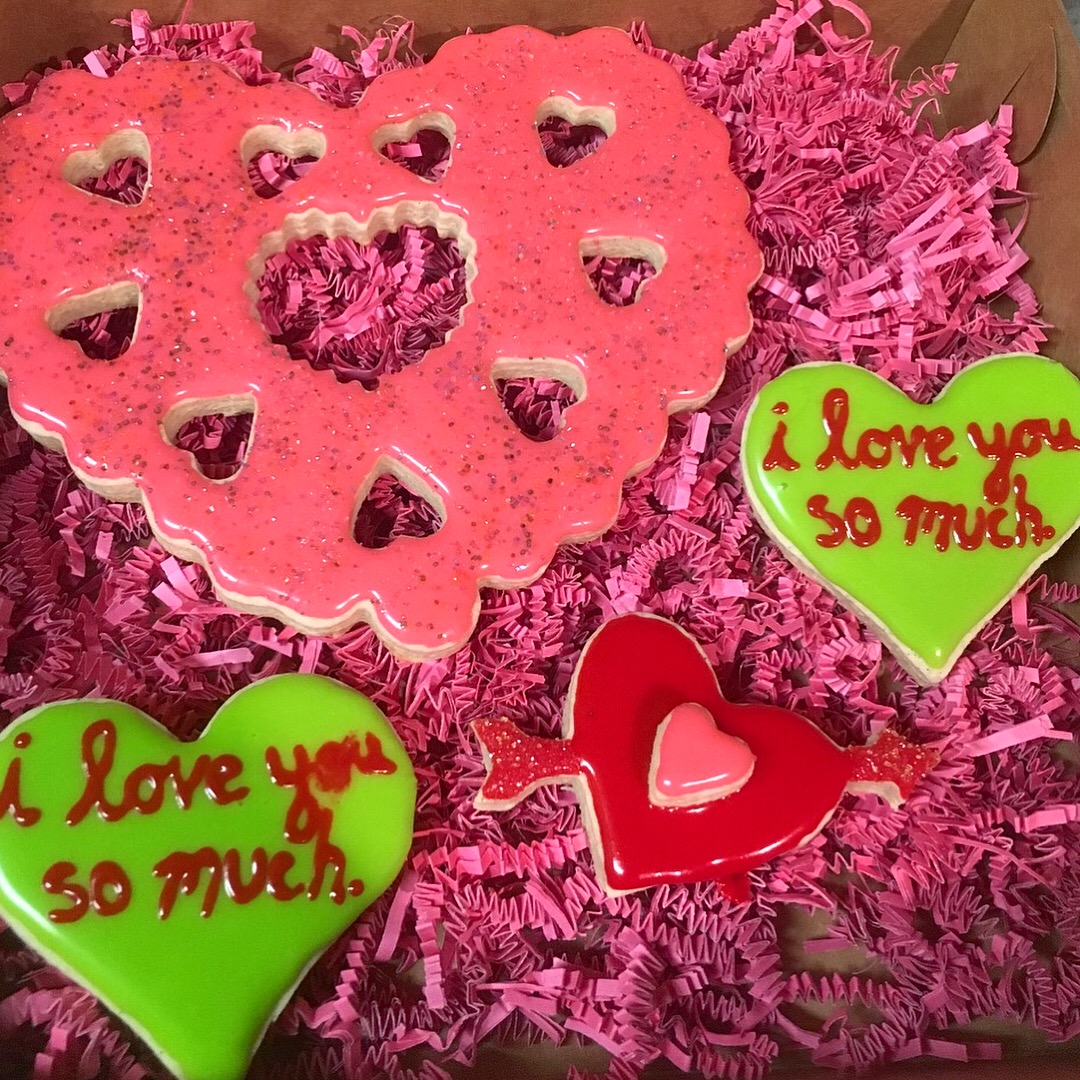 i love you
so much.
i love you
so much.